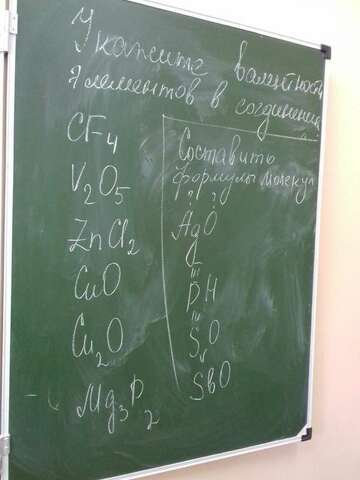 Укажите валентность
элементов в соединениях
CF₄
V₂O₅
ZnCl₂
CuO
Cu₂O
Mg₃P₂
Составить
формулы молекул
? ?
AgO
I
III
PH
III
SO
V
SbO